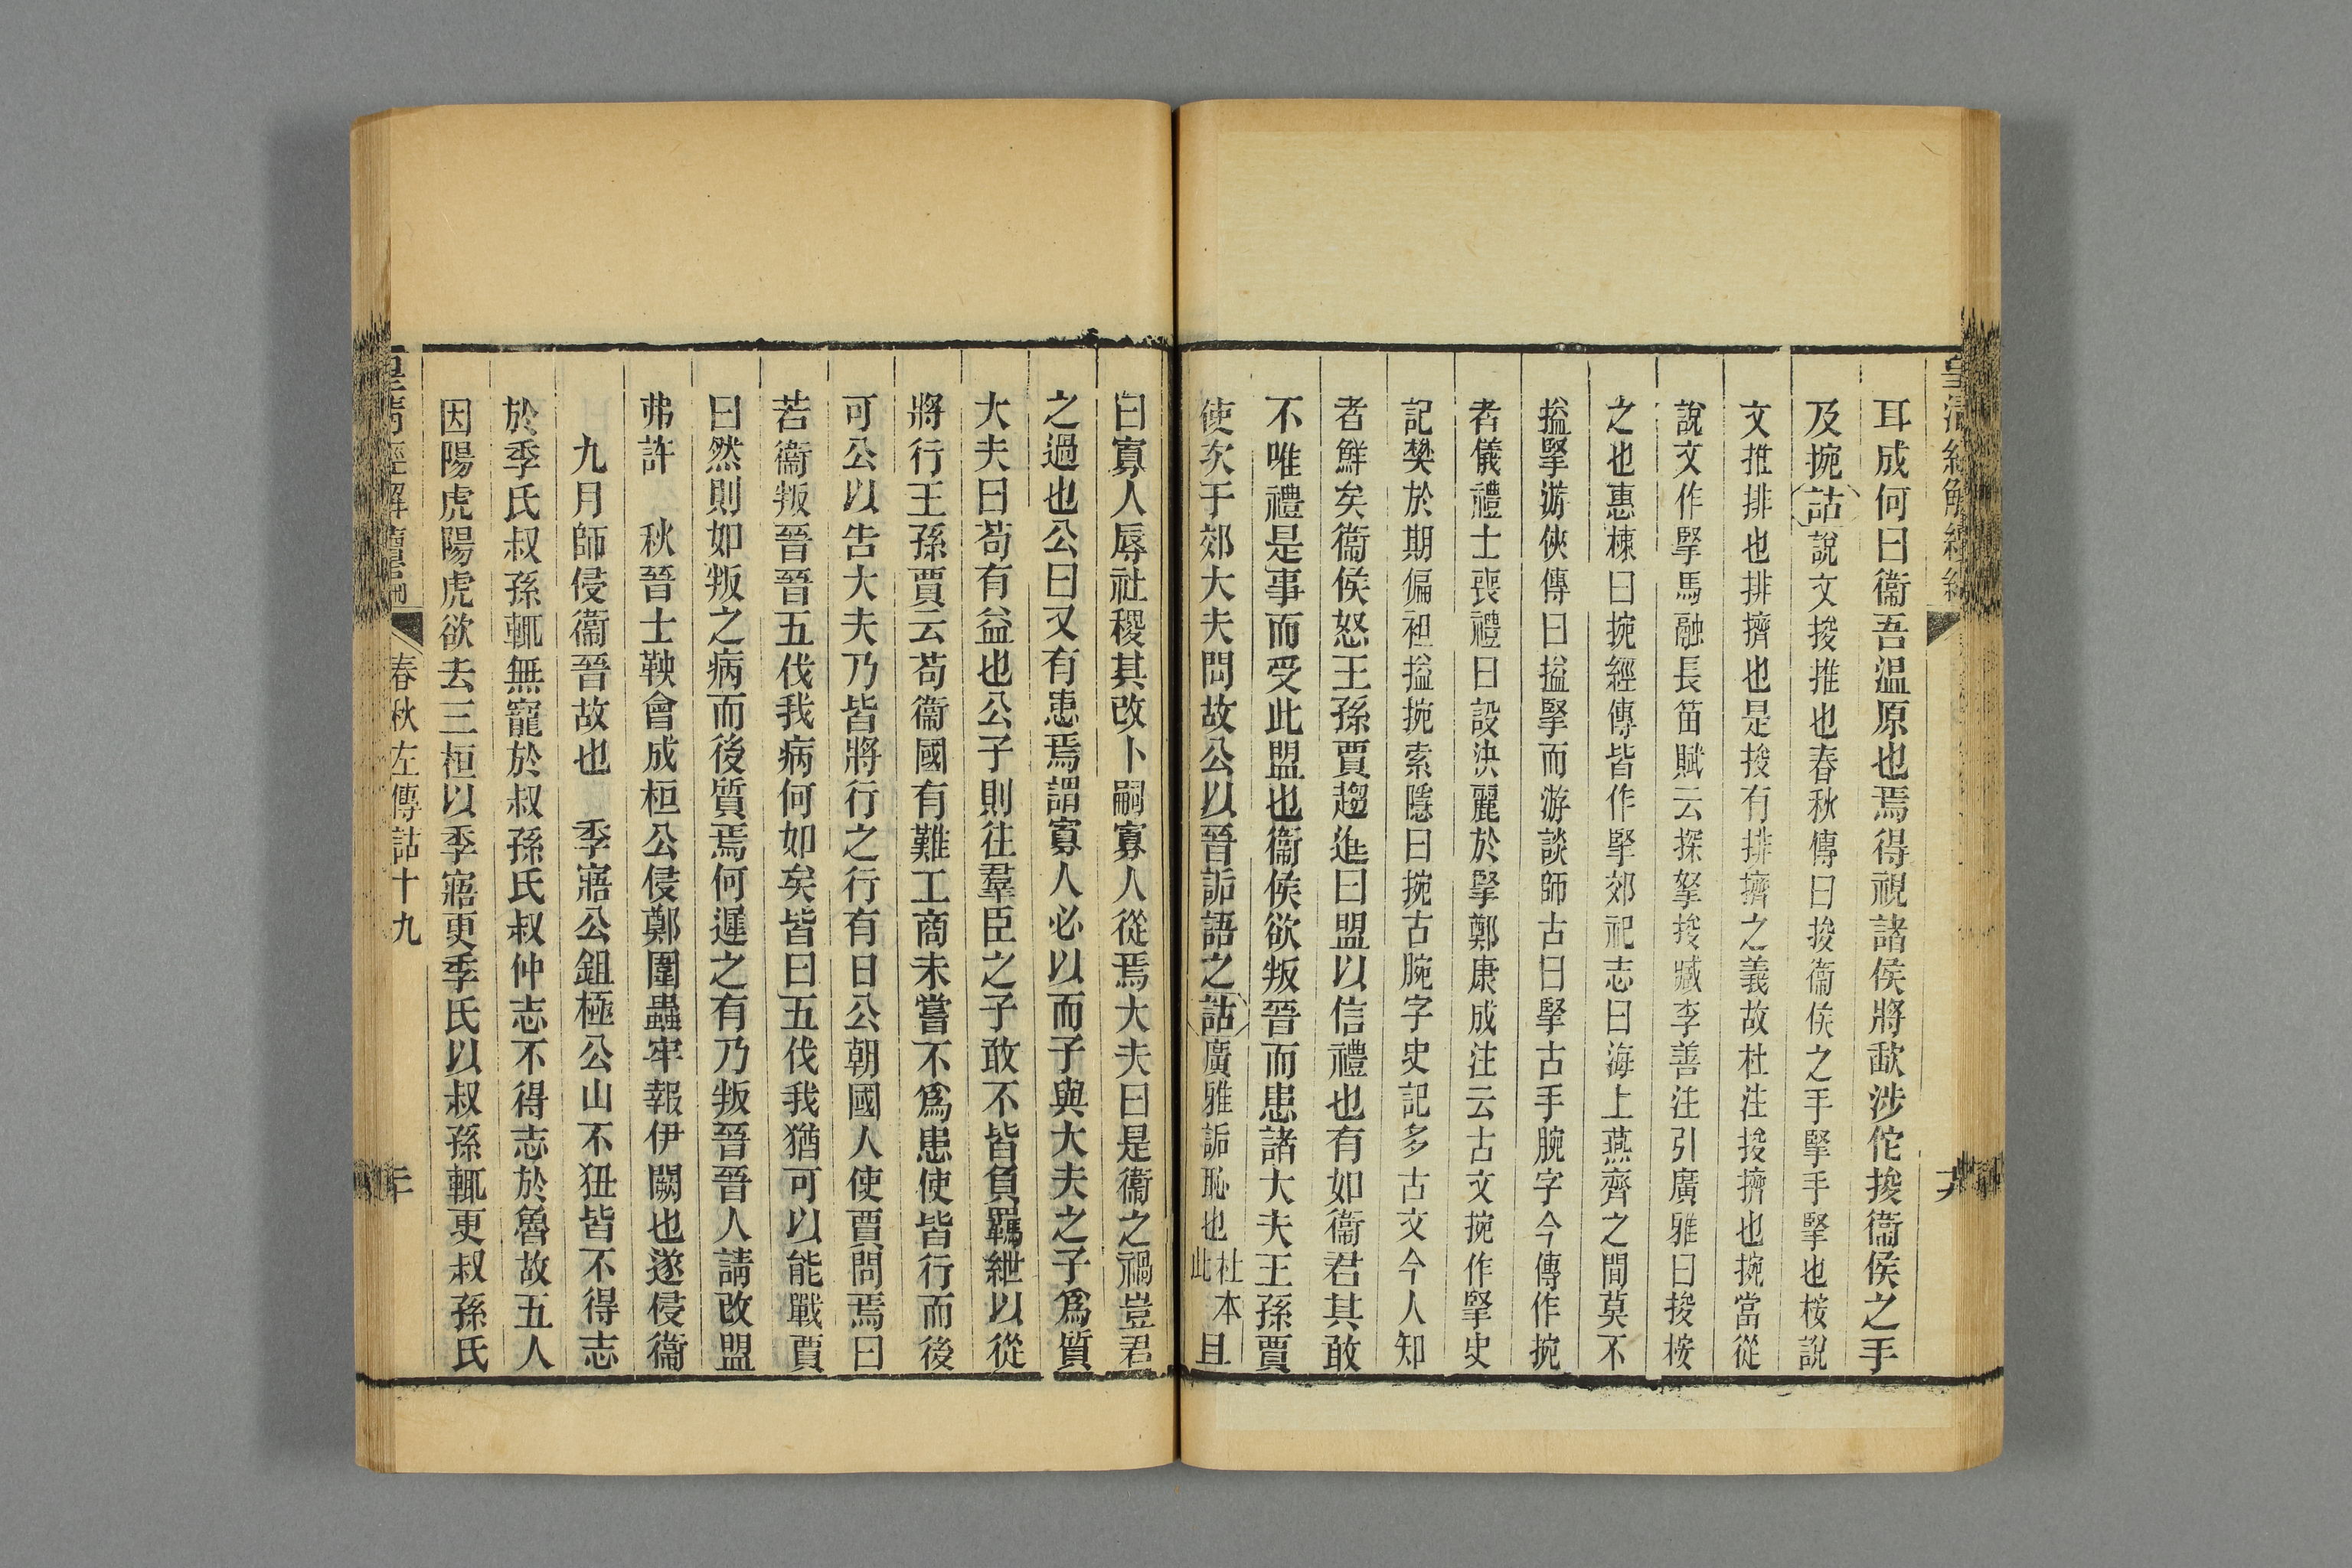 耳成何曰衞吾温原也焉得視諸侯將歃涉佗捘衞侯之手
及捥詁說文捘推也春秋傳曰捘衞侯之手掔手掔也桉說
文推排也排擠也是捘有排擠之義故杜注捘擠也捥當從
說文作掔馬融長笛賦云探拏捘臧李善注引廣雅曰捘桉
之也惠棟曰捥經傳皆作掔郊祀志曰海上燕齊之間莫不
搤掔游俠傳曰搤掔而游談師古曰掔古手腕字今傳作捥
者儀禮士喪禮曰設決麗於掔鄭康成注云古文捥作掔史
記樊於期偏袒搤捥索隱曰捥古腕字史記多古文今人知
者鮮矣衞侯怒王孫賈趨進曰盟以信禮也有如衞君其敢
不唯禮是事而受此盟也衞侯欲叛晉而患諸大夫王孫賈
使次于郊大夫問故公以晉詬語之詁廣雅詬恥也杜本此且
曰寡人辱社稷其改卜嗣寡人從焉大夫曰是衞之禍豈君
之過也公曰又有患焉謂寡人必以而子與大夫之子爲質
大夫曰苟有益也公子則往羣臣之子敢不皆負羈紲以從
將行王孫賈云苟衞國有難工商未嘗不爲患使皆行而後
可公以告大夫乃皆將行之行有日公朝國人使賈問焉曰
若衞叛晉晉五伐我病何如矣皆曰五伐我猶可以能戰賈
曰然則如叛之病而後質焉何遲之有乃叛晉晉人請改盟
弗許　秋晉士鞅會成桓公侵鄭圍蟲牢報伊闕也遂侵衞
九月師侵衞晉故也　季寤公鉏極公山不狃皆不得志
於季氏叔孫輒無寵於叔孫氏叔仲志不得志於魯故五人
因陽虎陽虎欲去三桓以季寤更季氏以叔孫輒更叔孫氏
春秋左傳詁十九